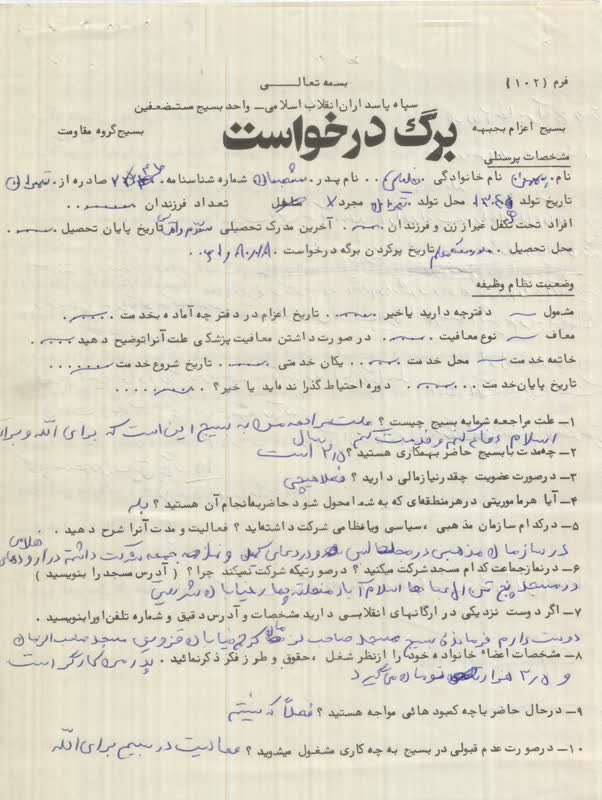 بسمه تعالی
فرم (۱۰۲)
سپاه پاسداران انقلاب اسلامی ـ واحد بسیج مستضعفین
بسیج اعزام بجبهه
برگ درخواست
بسیج گروه مقاومت
مشخصات پرسنلی
نام . نام خانوادگی . نام پدر . شعبان شماره شناسنامه . صادره از . تهران
تاریخ تولد محل تولد . تهران مجرد x متاهل تعداد فرزندان
افراد تحت تکفل غیر از زن و فرزندان . آخرین مدرک تحصیلی تاریخ پایان تحصیل .
محل تحصیل . تاریخ پرکردن برگه درخواست .
وضعیت نظام وظیفه
مشمول دفترچه دارید یا خیر . تاریخ اعزام در دفترچه آماده بخدمت .
معاف نوع معافیت . در صورت داشتن معافیت پزشکی علت آنرا توضیح دهید
خاتمه خدمت محل خدمت . یکان خدمتی . تاریخ شروع خدمت
تاریخ پایان خدمت . دوره احتیاط گذرانده اید یا خیر ؟ .
۱ـ علت مراجعه شما به بسیج چیست ؟ علت مراجعه من به بسیج این است که برای الله و برای
اسلام دفاع کنم و خدمت کنم
۲ـ چه مدت با بسیج حاضر بهمکاری هستید ؟ ۳/۵ سال است
۳ـ در صورت عضویت چقدر نیاز مالی دارید ؟ فعلا هیچی
۴ـ آیا هر ماموریتی در هر منطقه ای که به شما محول شود حاضر به انجام آن هستید ؟ بله
۵ـ در کدام سازمان مذهبی ، سیاسی و یا نظامی شرکت داشته اید ؟ فعالیت و مدت آنرا شرح دهید .
در سازمان مذهبی در دعای کمیل و نماز جمعه شرکت داشته در اردوهای
۶ـ در نماز جماعت کدام مسجد شرکت میکنید ؟ در صورتیکه شرکت نمیکنند چرا ؟ ( آدرس مسجد را بنویسید )
در مسجد پنج تن آل عبا اسلام آباد منطقه چهار خیابان شریعتی
۷ـ اگر دوست نزدیکی در ارگانهای انقلابی دارید مشخصات و آدرس دقیق و شماره تلفن او را بنویسید .
دوست دارم فرمانده بسیج مسجد صاحب کرج خیابان قزوین مسجد صاحب الزمان
۸ـ مشخصات اعضاء خانواده خود را از نظر شغل ، حقوق و طرز فکر ذکر نمائید . پدر من کارگر است
و ۳/۵ هزار تومان می گیرد
۹ـ در حال حاضر با چه کمبودهائی مواجه هستید ؟ فعلاً که نیستم
۱۰ـ در صورت عدم قبولی در بسیج به چه کاری مشغول میشوید ؟ فعالیت در بسیج برای الله